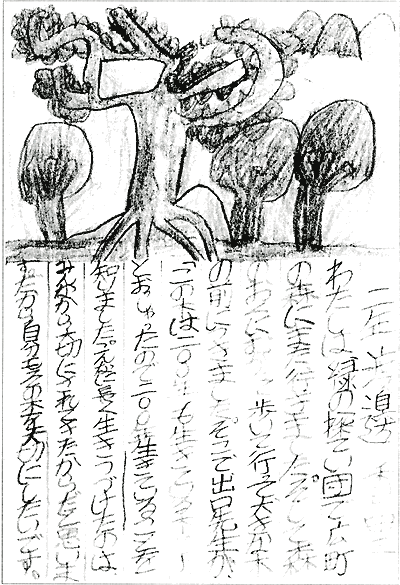 二年
わたしは緑の探てい団で広町
の森に行きました。そして森
のおくに 歩いて行って大きな木
の前にきました。そこで出口先生が
「この木は二〇〇年も生きている
とおしゃったので二〇〇年生きていることを
知りました。こんなに長く生きつづけたのは
みんなから大切にされてきたからだと思いま
すだから自分もこの木を大切にしたいです。